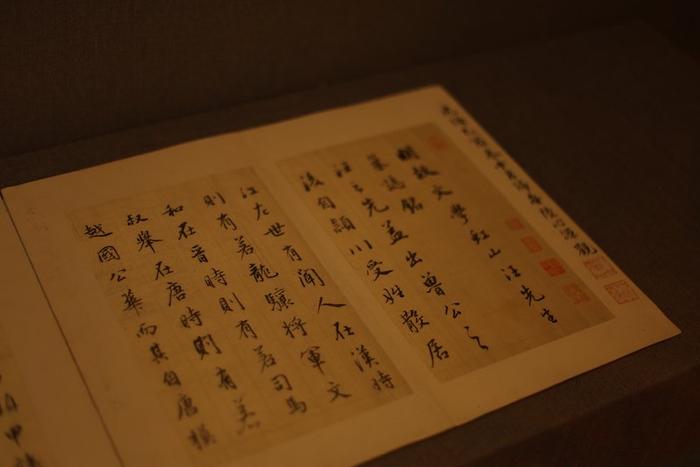 陸心源觀
明故文學虹山汪先生
墓誌銘
汪之先蓋出魯公之
後自潁川受姓散居
江左世有聞人在漢時
則有若龍驤將軍文
和在晉時則有若司馬
叔舉在唐時則有若
越國公華而其自唐模